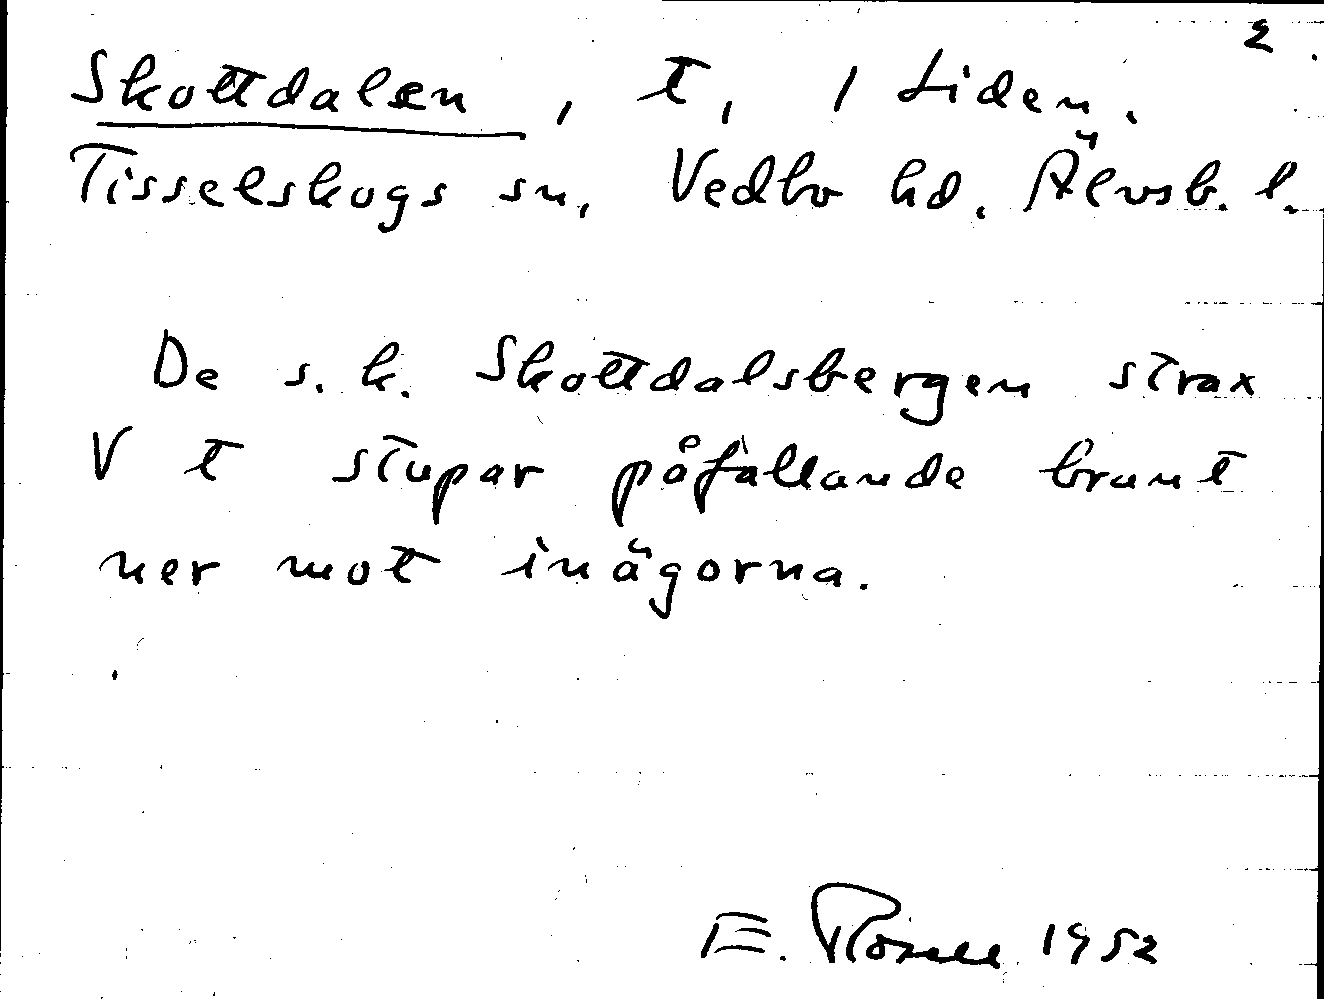 2.
Skottdalen, t, 1 Liden.
Tisselskogs sn, Vedbo hd. Älvsb. l.
De s.k. Skottdalsbergen strax
V t stupar påfallande brant
ner mot inägorna.
E. Rosell 1952